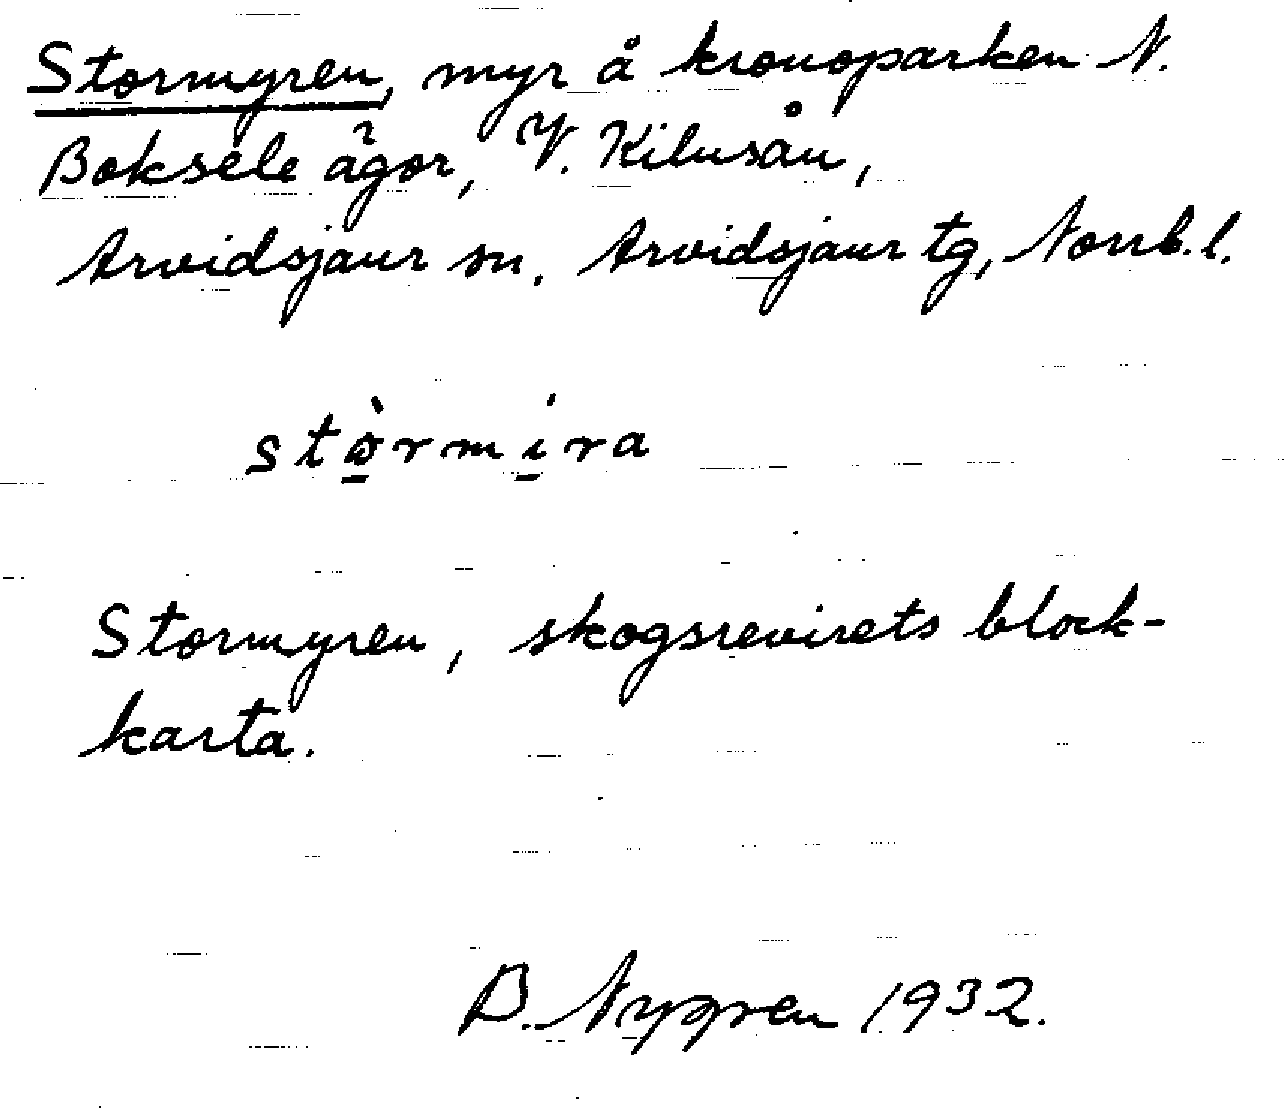 Stormyren, myr å kronoparken N.
Boksele ägor, V. Kilusån,
Arvidsjaur sn. Arvidsjaur tg, Norrb. l.
stòrmira
Stormyren, skogsrevirets block-
karta.
B. Nygren 1932.